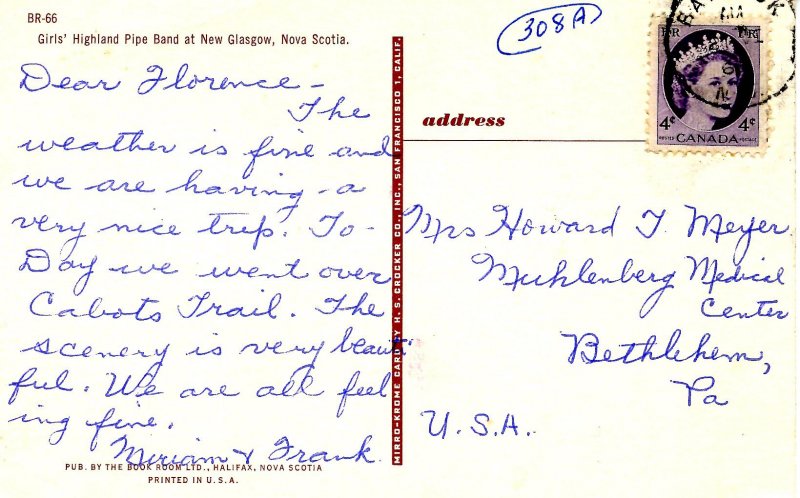 BR-66
Girls' Highland Pipe Band at New Glasgow, Nova Scotia.
Dear Florence -
The
weather is fine and
we are having a
very nice trip. To-
Day we went over
Cabots Trail. The
scenery is very beauti
ful. We are all feel
ing fine.
Miriam & Frank
PUB. BY THE BOOK ROOM LTD., HALIFAX, NOVA SCOTIA
PRINTED IN U.S.A.
MIRRO-KROME CARD BY H. S. CROCKER CO., INC., SAN FRANCISCO 1, CALIF.
308A
address
4¢ 4¢
CANADA
Mrs Howard T. Meyer
Muhlenberg Medical
Center
Bethlehem,
Pa
U.S.A.